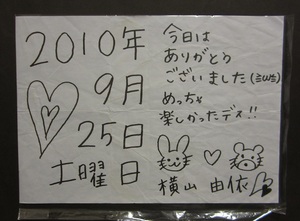 2010年
9月
25日
土曜日
今日は
ありがとう
ございました(≧ω≦)
めっちゃ
楽しかったデス!!
横山 由依